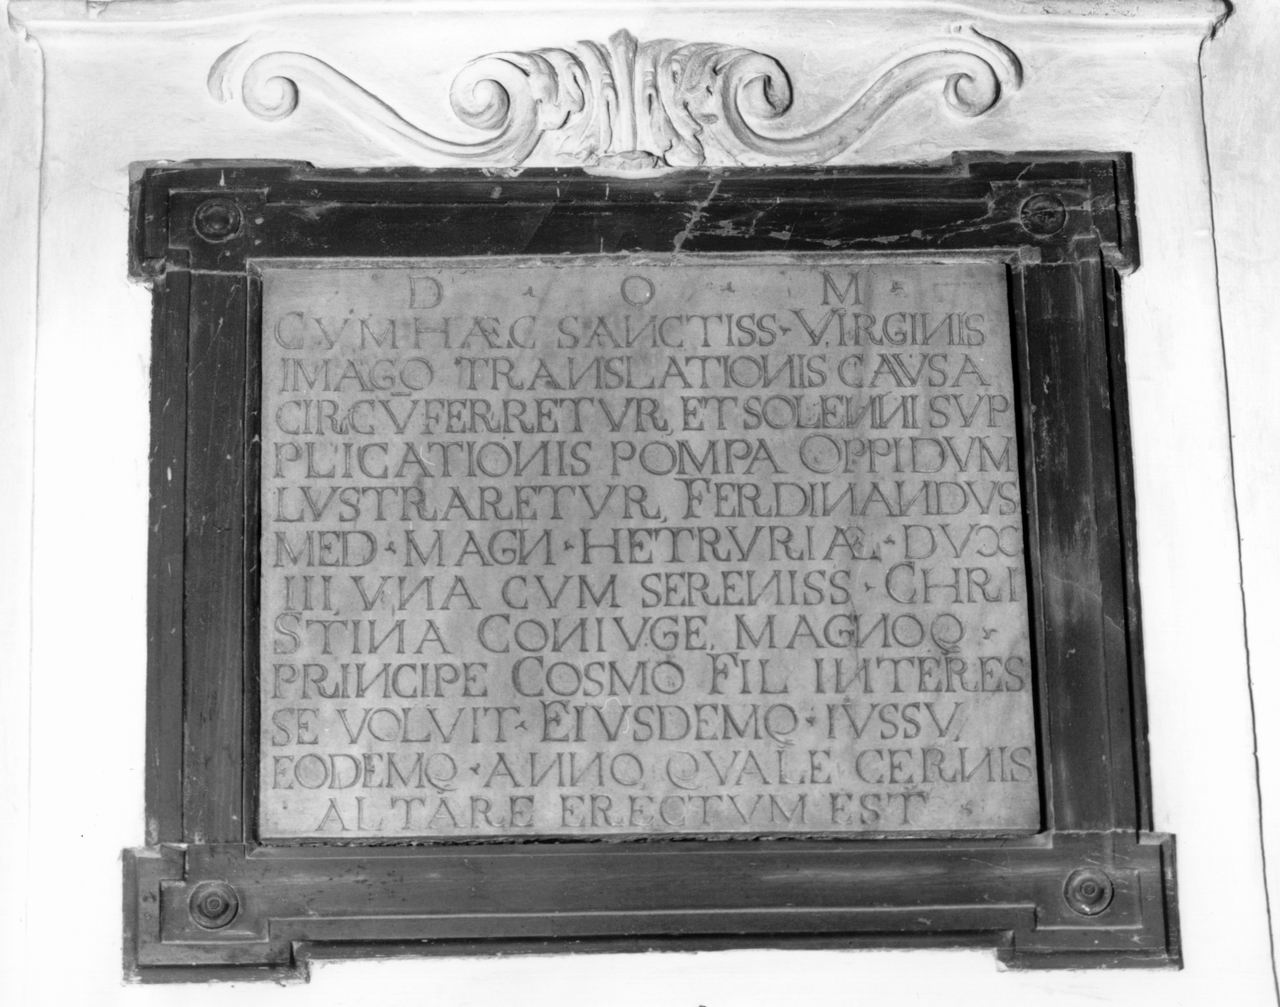 D · O · M ·
CVM HÆC SANCTISS · VIRGINIS
IMAGO TRANSLATIONIS CAVSA
CIRCVFERRETVR, ET SOLENNI SVP
PLICATIONIS POMPA OPPIDVM
LVSTRARETVR, FERDINANDVS
MED · MAGN · HETRVRIÆ · DVX
III, VNA CVM SERENISS · CHRI
STINA CONIVGE, MAGNOQ ·
PRINCIPE COSMO FIL INTERES
SE VOLVIT · EIVSDEMQ · IVSSV,
EODEMQ · ANNO QVALE CERNIS
ALTARE ERECTVM EST ·